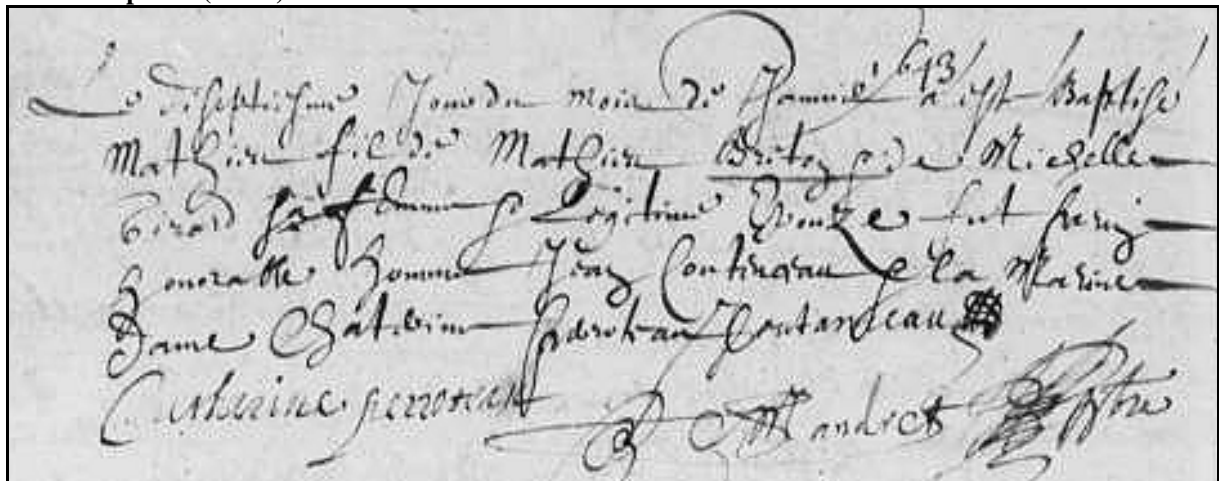 Le diseptiesme Jour du mois de Janvier 1643 a est Baptisé
Mathieu fil de Mathieu Breton & de Michelle
Girard sa femme & Legitime Epouze fut parin
honorable homme Jean Contineau & la Marine
Dame Chaterine Perroteau Coutanceau
Catherine perroteau
Mandret pbtre